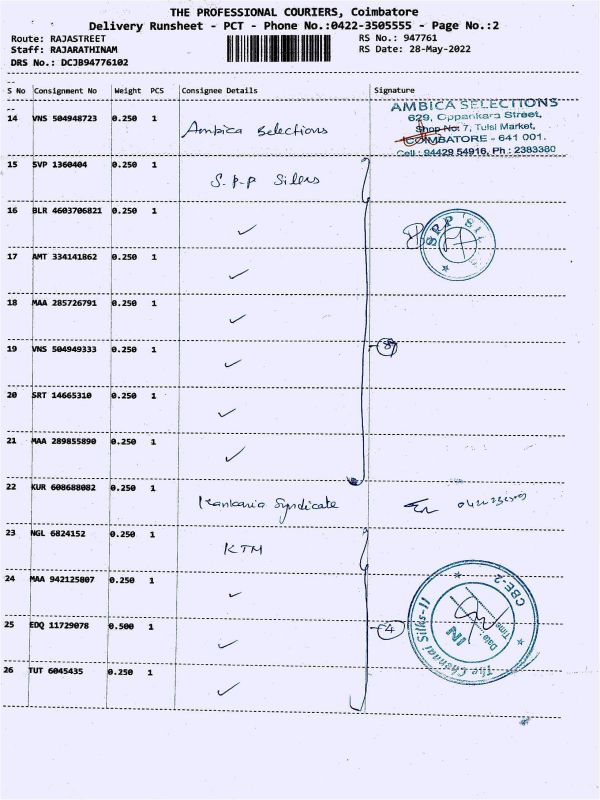 THE PROFESSIONAL COURIERS, Coimbatore
Delivery Runsheet - PCT - Phone No.:0422-3505555 - Page No.:2
Route: RAJASTREET RS No.: 947761
Staff: RAJARATHINAM RS Date: 28-May-2022
DRS No.: DCJB94776102
S No Consignment No Weight PCS Consignee Details Signature
14 VNS 504948723 0.250 1 Ambica Selections
AMBICA SELECTIONS
629, Oppankara Street,
Shop No: 7, Tulsi Market,
COIMBATORE - 641 001.
Cell : 94429 54916, Ph : 2383380
15 SVP 1360404 0.250 1 S.P.P
16 BLR 4603706821 0.250 1 ✓
17 AMT 334141862 0.250 1 ✓
18 MAA 285726791 0.250 1 ✓
19 VNS 504949333 0.250 1 ✓ 8
20 SRT 14665310 0.250 1 ✓
21 MAA 289855890 0.250 1 ✓
22 KUR 608688082 0.250 1 Syndicate
23 NGL 6824152 0.250 1 KTM
24 MAA 942125007 0.250 1 ✓
25 EDQ 11729078 0.500 1 ✓ 4
26 TUT 6045435 0.250 1 ✓
The Chennai Silks-II CBE-2
IN
Date :
Time